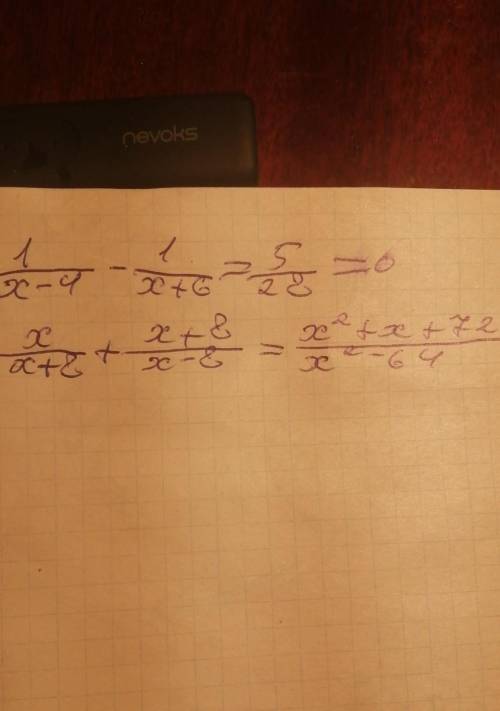 nevoks
1/(x-4) - 1/(x+6) = 5/28 = 0
x/(x+8) + (x+8)/(x-8) = (x²+x+72)/(x²-64)